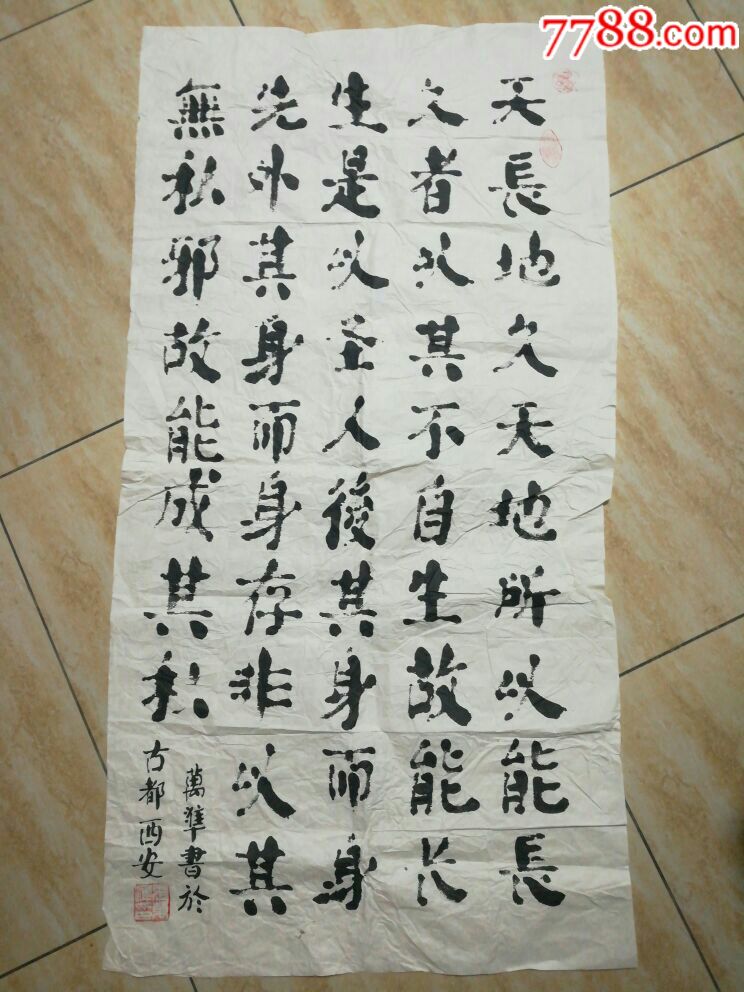 7788.com
天長地久天地所以能長
久者以其不自生故能长
生是以圣人後其身而身
先外其身而身存非以其
無私邪故能成其私
萬書於
古都西安